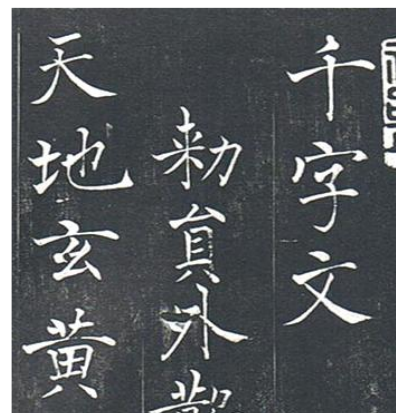 千字文
勑員外
天地玄黃